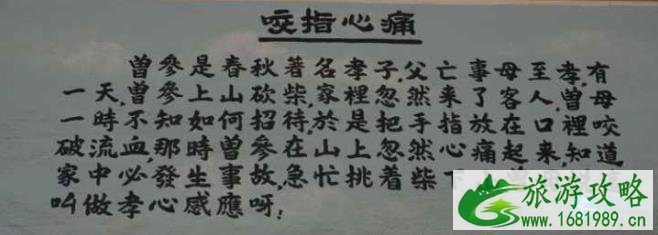 咬指心痛
曾參是春秋著名孝子,父亡事母至孝,有
一天,曾參上山砍柴,家裡忽然来了客人,曾母
一時不知如何招待,於是把手指放在口裡咬
破流血,那時曾參在山上忽然心痛起来,知道
家中必發生事故,急忙挑着柴
叫做孝心感應呀!
旅游攻略
www.1681989.cn